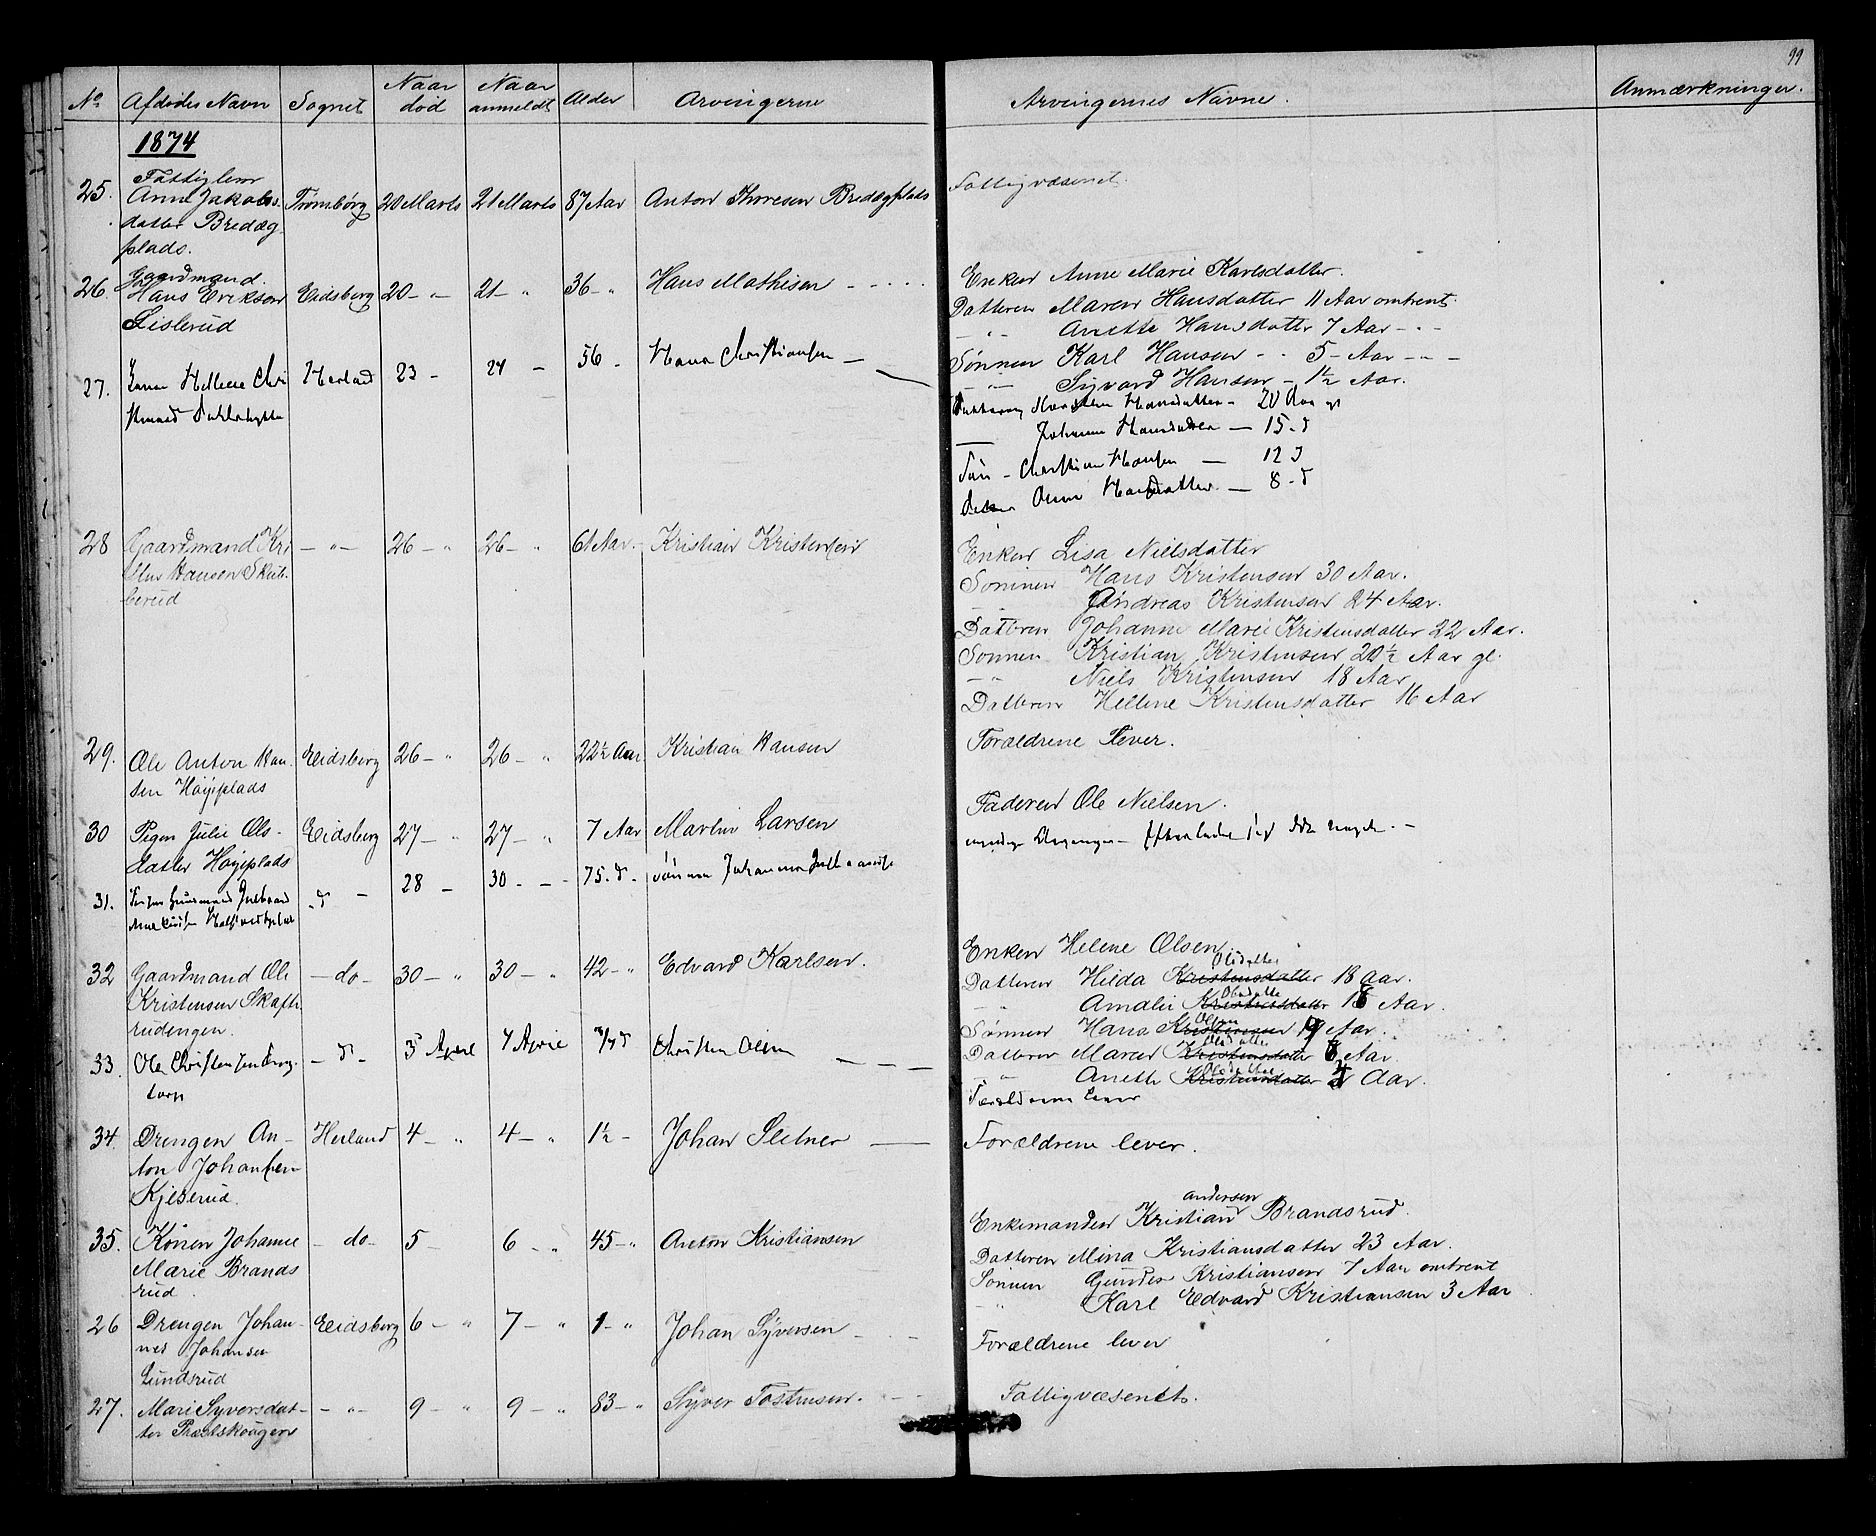 99
No Afdødes Navn Sognet Naar død Naar anmeldt Alder Arvingerne Arvingernes Navne. Anmærkninger.
1874
25. Fattiglem Anne Jakobs- Trømborg 20 Marts 21 Marts 87 Aar Anton Thoresen Bredægplads Fattigvæsenet.
datter Bredæg
plads.
26. Gaardmand Hans Erikson Eidsberg 20 – „ 21 – „ 36 – „ Hans Mathisen Enken Anne Marie Karlsdatter.
Lislerud
Datteren Maren Hansdatter 11 Aar omtrent
– „ – Anette Hansdatter 7 Aar – „ –
Sønnen Karl Hansen – „ 5 – Aar – „ –
– „ – Sigvard Hansen – 1½ Aar.
27. Hellene Herland 23 – 24 – 56 – Hans Christiansen –
Hansdatter – 20 Aar gl
Johanne Hansdatter — 15 – d
Søn – Christian Hansen — 12 d
Anne Hansdatter — 8 – d
28 Gaardmand Kri – „ – 26 – „ 26 – „ 61 Aar – Kristian Kristensen Enken Lisa Nielsdatter
Hansen
berud
Sønnen Hans Kristensen 30 Aar.
– „ – Andreas Kristensen 24 Aar.
Datteren Johanne Marie Kristensdatter 22 Aar.
Sønnen Kristian Kristensen 20½ Aar gl.
– „ – Niels Kristensen 18 Aar
Datteren Hellene Kristensdatter 16 Aar
29. Ole Anton Han- Eidsberg 26 – „ 26 – „ 22½ Aar Kristian Hansen Forældrene Lever.
sen Høyeplads
30 Pigen Julie Ols- Eidsberg 27 – „ 27 – „ 7 Aar Martin Larsen Faderen Ole Nielsen.
datter Høyeplads
31. d – 28 – 30 – – 75 – d – Sønnen Johannes
32 Gaardmand Ole – do – 30 – „ 30 – „ 42 – „ Edvard Karlsen. Enken Helene Olsen
Kristensen Skaft-
rudengen.
Datteren Hilda Kristensdatter Olsdatter 18 Aar.
– „ – Amalie Kristensdatter Olsdatter Aar.
Sønnen Hans Kristensen Olsen Aar.
Datteren Maren Kristensdatter Olsdatter 8 Aar.
– „ – Anette Kristensdatter Olsdatter Aar.
33. Ole Christensen – d – 3 April 7 April Christen Olsen — — — Forældrene lever
torp
34. Drengen An- Herland 4 – „ 4 – „ 1½ – Johan Sletner — Forældrene lever.
ton Johansen
Kjeserud.
35. Konen Johanne – do – 5 – 6 – „ 45 – „ Anton Kristiansen Enkemanden Kristian Andersen Brandsrud.
Marie Brands
rud.
Datteren Mina Kristiansdatter 23 Aar.
Sønnen Gunder Kristiansen 7 Aar omtrent
– „ Karl Edvard Kristiansen 3 Aar
26 Drengen Johan- Eidsberg 6 – „ 7 – „ 1 – „ Johan Syversen Forældrene lever
nes Johansen
Lundsrud
27. Mari Syversdat- – „ – 9 – „ 9 – „ 83 – „ Syver Tostensen. Fattigvæsenet.
ter